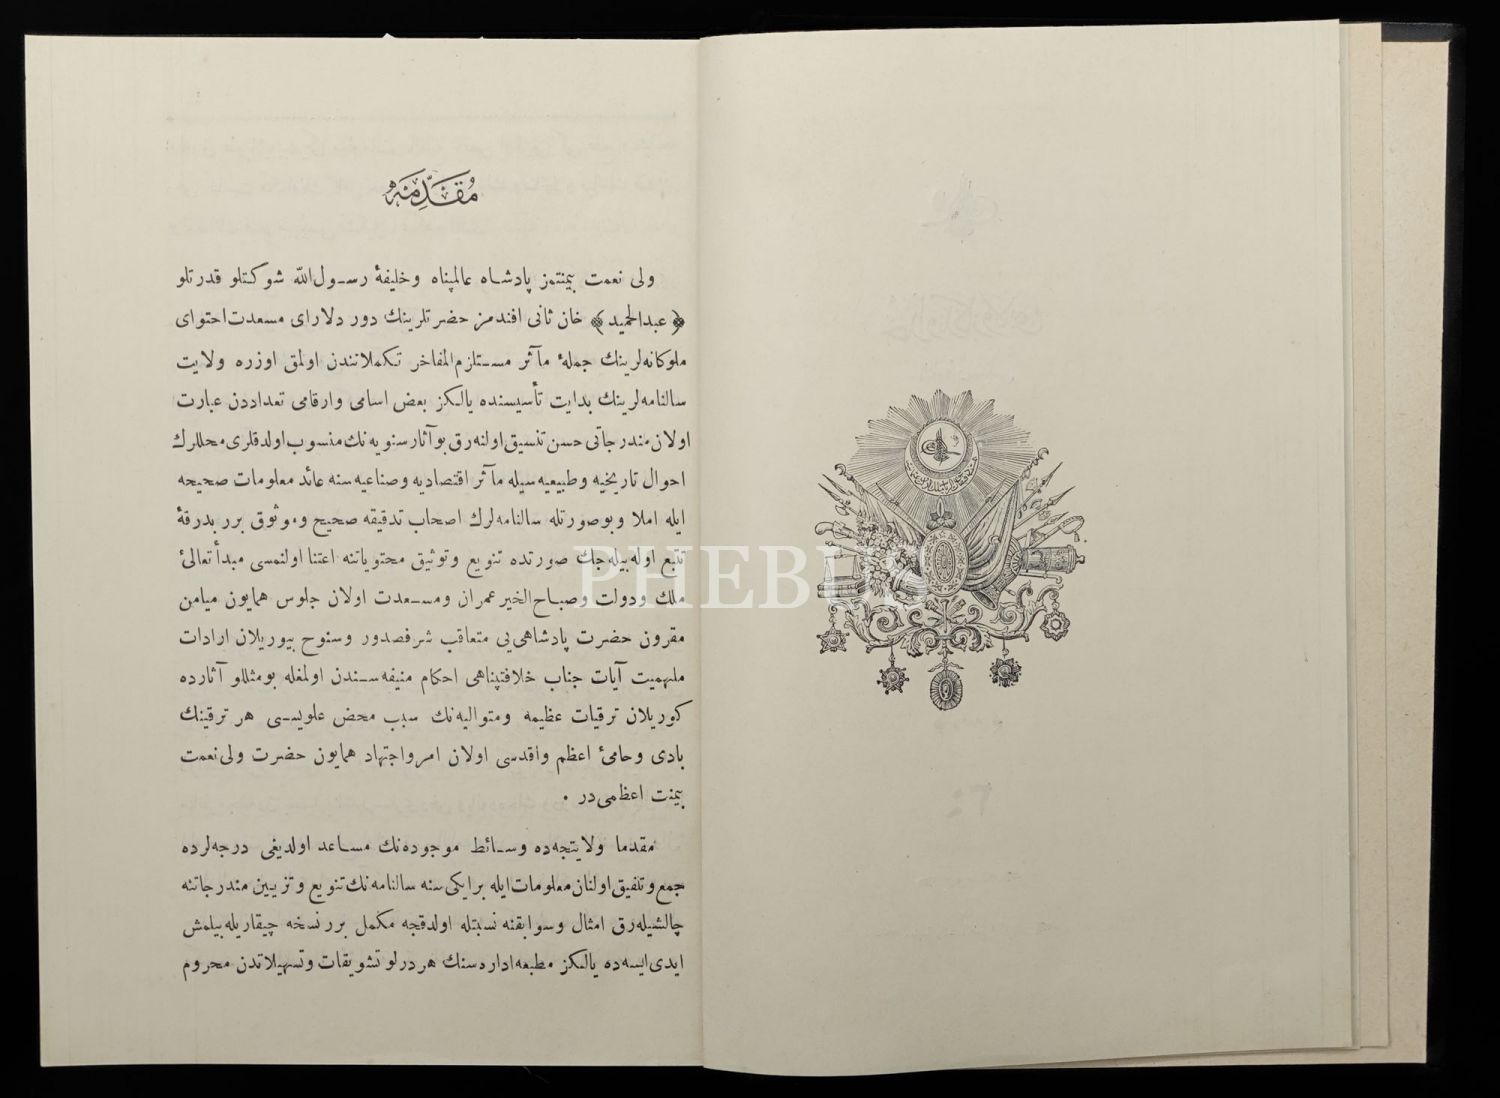 مُقَدِّمَه
ولی نعمت بیمنتمز پادشاه عالمپناه وخلیفۀ رسول‌الله شوکتلو قدرتلو
﴿عبدالحمید﴾ خان ثانی افندمز حضرتلرینك دور دلارای مسعدت احتوای
ملوکانه‌لرینك جملۀ مآثر مستلزم‌المفاخر تکملاتندن اولمق اوزره ولایت
سالنامه‌لرینك بدایت تأسیسنده یالکز بعض اسامی وارقامی تعداددن عبارت
اولان مندرجاتی حسن تنسیق اولنه‌رق بو آثار سنویه‌نك منسوب اولدقلری محللرك
احوال تاریخیه وطبیعیه‌سیله مآثر اقتصادیه وصناعیه‌سنه عائد معلومات صحیحه
ایله املا وبوصورتله سالنامه‌لرك اصحاب تدقیقه صحیح وموثوق برر بدرقۀ
تتبع اوله‌بیله‌جك صورتده تنویع وتوثیق محتویاتنه اعتنا اولنمسی مبدأ تعالئ
ملك ودولت وصباح‌الخیر عمران ومسعدت اولان جلوس همایون میامن
مقرون حضرت پادشاهی‌یی متعاقب شرفصدور وسنوح بیوریلان ارادات
ملهمیت آیات جناب خلافتپناهی احکام منیفه‌سندن اولمغله بومثللو آثارده
کوریلان ترقیات عظیمه ومتوالیه‌نك سبب محض علویسی هر ترقینك
بادی وحامئ اعظم واقدسی اولان امر واجتهاد همایون حضرت ولی‌نعمت
بیمنت اعظمی‌در .
مقدما ولایتجه‌ده وسائط موجوده‌نك مساعد اولدیغی درجه‌لرده
جمع وتلفیق اولنان معلومات ایله برایکی سنه سالنامه‌نك تنویع وتزیین مندرجاتنه
چالشیله‌رق امثال وسوابقنه نسبتله اولدقجه مکمل برر نسخه چیقاریله‌بیلمش
ایدی ایسه‌ده یالکز مطبعه اداره‌سنك هر درلو تشویقات وتسهیلاتدن محروم
PHEBUS